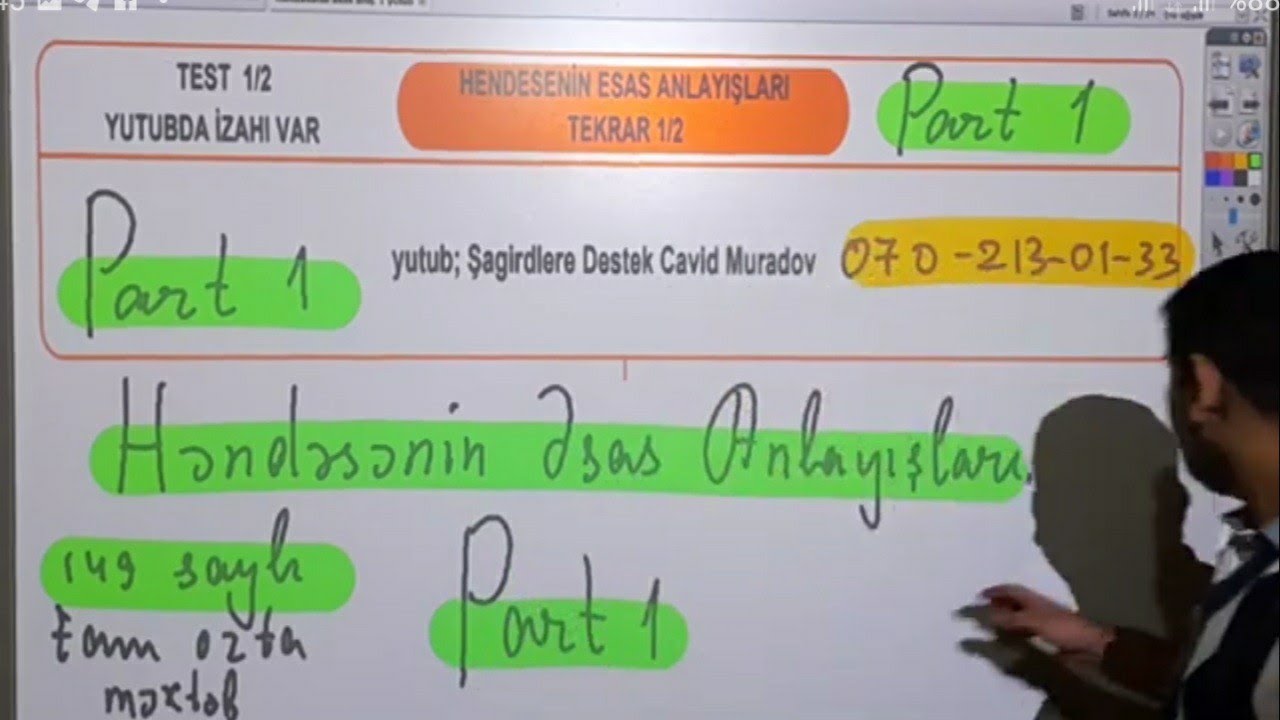 TEST 1/2
YUTUBDA İZAHI VAR
HENDESENİN ESAS ANLAYIŞLARI
TEKRAR 1/2
Part 1
Part 1
yutub; Şagirdlere Destek Cavid Muradov
070-213-01-33
Həndəsənin Əsas Anlayışları.
149 saylı
tam orta
məktəb
Part 1